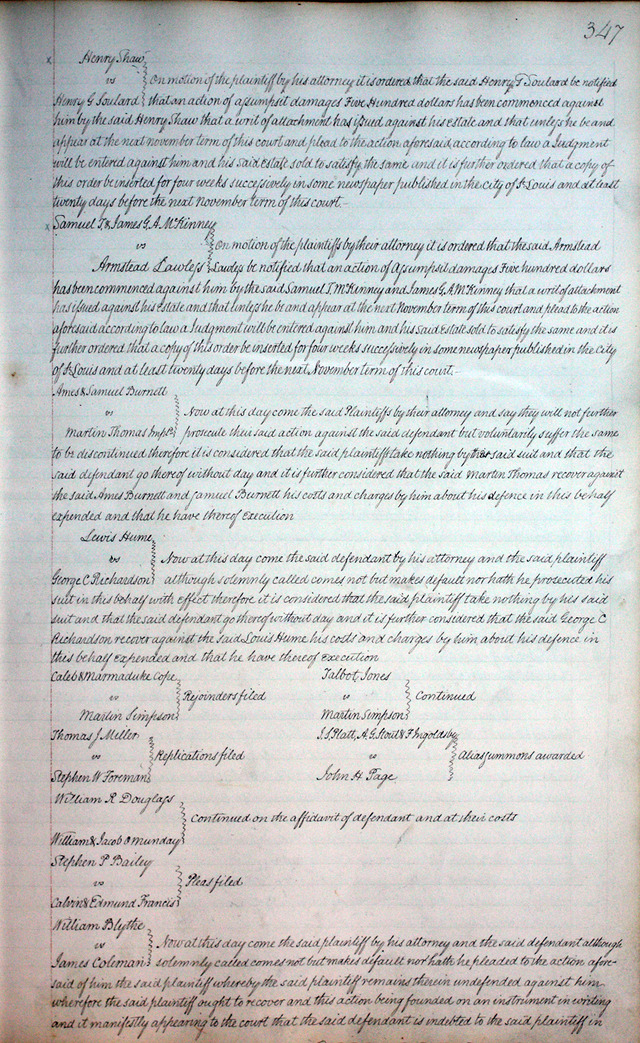 347
x Henry Shaw
vs On motion of the plaintiff by his attorney it is ordered that the said Henry G Soulard be notified
Henry G Soulard that an action of assumpsit damages Five Hundred dollars has been commenced against
him by the said Henry Shaw that a writ of attachment has issued against his estate and that unless he be and
appear at the next november term of this court and plead to the action aforesaid according to law a Judgment
will be entered against him and his said estate sold to satisfy the same and it is further ordered that a copy of
this order be inserted for four weeks successively in some newspaper published in the city of St Louis and at least
twenty days before the next November term of this court.-
x Samuel T & James G. A. McKinney
vs On motion of the plaintiffs by their attorney it is ordered that the said Armstead
Armstead Lawless Lawless be notified that an action of Assumpsit damages Five hundred dollars
has been commenced against him by the said Samuel T McKinney and James G A McKinney that a writ of attachment
has issued against his estate and that unless he be and appear at the next November term of this court and plead to the action
aforesaid according to law a Judgment will be entered against him and his said estate sold to satisfy the same and it is
further ordered that a copy of this order be inserted for four weeks successively in some newspaper published in the City
of St Louis and at least twenty days before the next November term of this court.-
Ames & Samuel Burnett
vs Now at this day come the said Plaintiffs by their attorney and say they will not further
Martin Thomas prosecute their said action against the said defendant but voluntarily suffer the same
to be discontinued therefore it is considered that the said plaintiff take nothing by said suit and that the
said defendant go thereof without day and it is further considered that the said Martin Thomas recover against
the said Ames Burnett and Samuel Burnett his costs and charges by him about his defence in this behalf
expended and that he have thereof Execution
Lewis Hume
vs Now at this day come the said defendant by his attorney and the said plaintiff
George C Richardson although solemnly called comes not but makes default nor hath he prosecuted his
suit in this behalf with effect therefore it is considered that the said plaintiff take nothing by his said
suit and that the said defendant go thereof without day and it is further considered that the said George C
Richardson recover against the said Louis Hume his costs and charges by him about his defence in
this behalf expended and that he have thereof Execution
Caleb & Marmaduke Cope
vs Rejoinders filed
Martin Simpson
Talbot Jones
vs Continued
Martin Simpson
Thomas J Meller
vs Replications filed
Stephen W Foreman
S. S. Platt, A. G. Stout & F Ingoldsby
vs Alias summons awarded
John H Page
William R Douglass
Continued on the affidavit of defendant and at their costs
William & Jacob Omunday
Stephen P Bailey
vs Pleas filed
Calvin & Edmund Francis
William Blythe
vs Now at this day come the said plaintiff by his attorney and the said defendant although
James Coleman solemnly called comes not but makes default nor hath he pleaded to the action afore-
said of him the said plaintiff whereby the said plaintiff remains therein undefended against him
wherefore the said plaintiff ought to recover and this action being founded on an instrument in writing
and it manifestly appearing to the court that the said defendant is indebted to the said plaintiff in